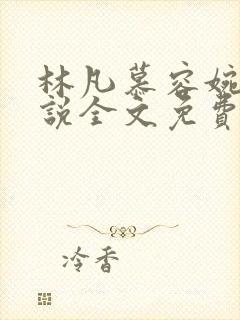 林凡慕容婉
說全文免費
冷香